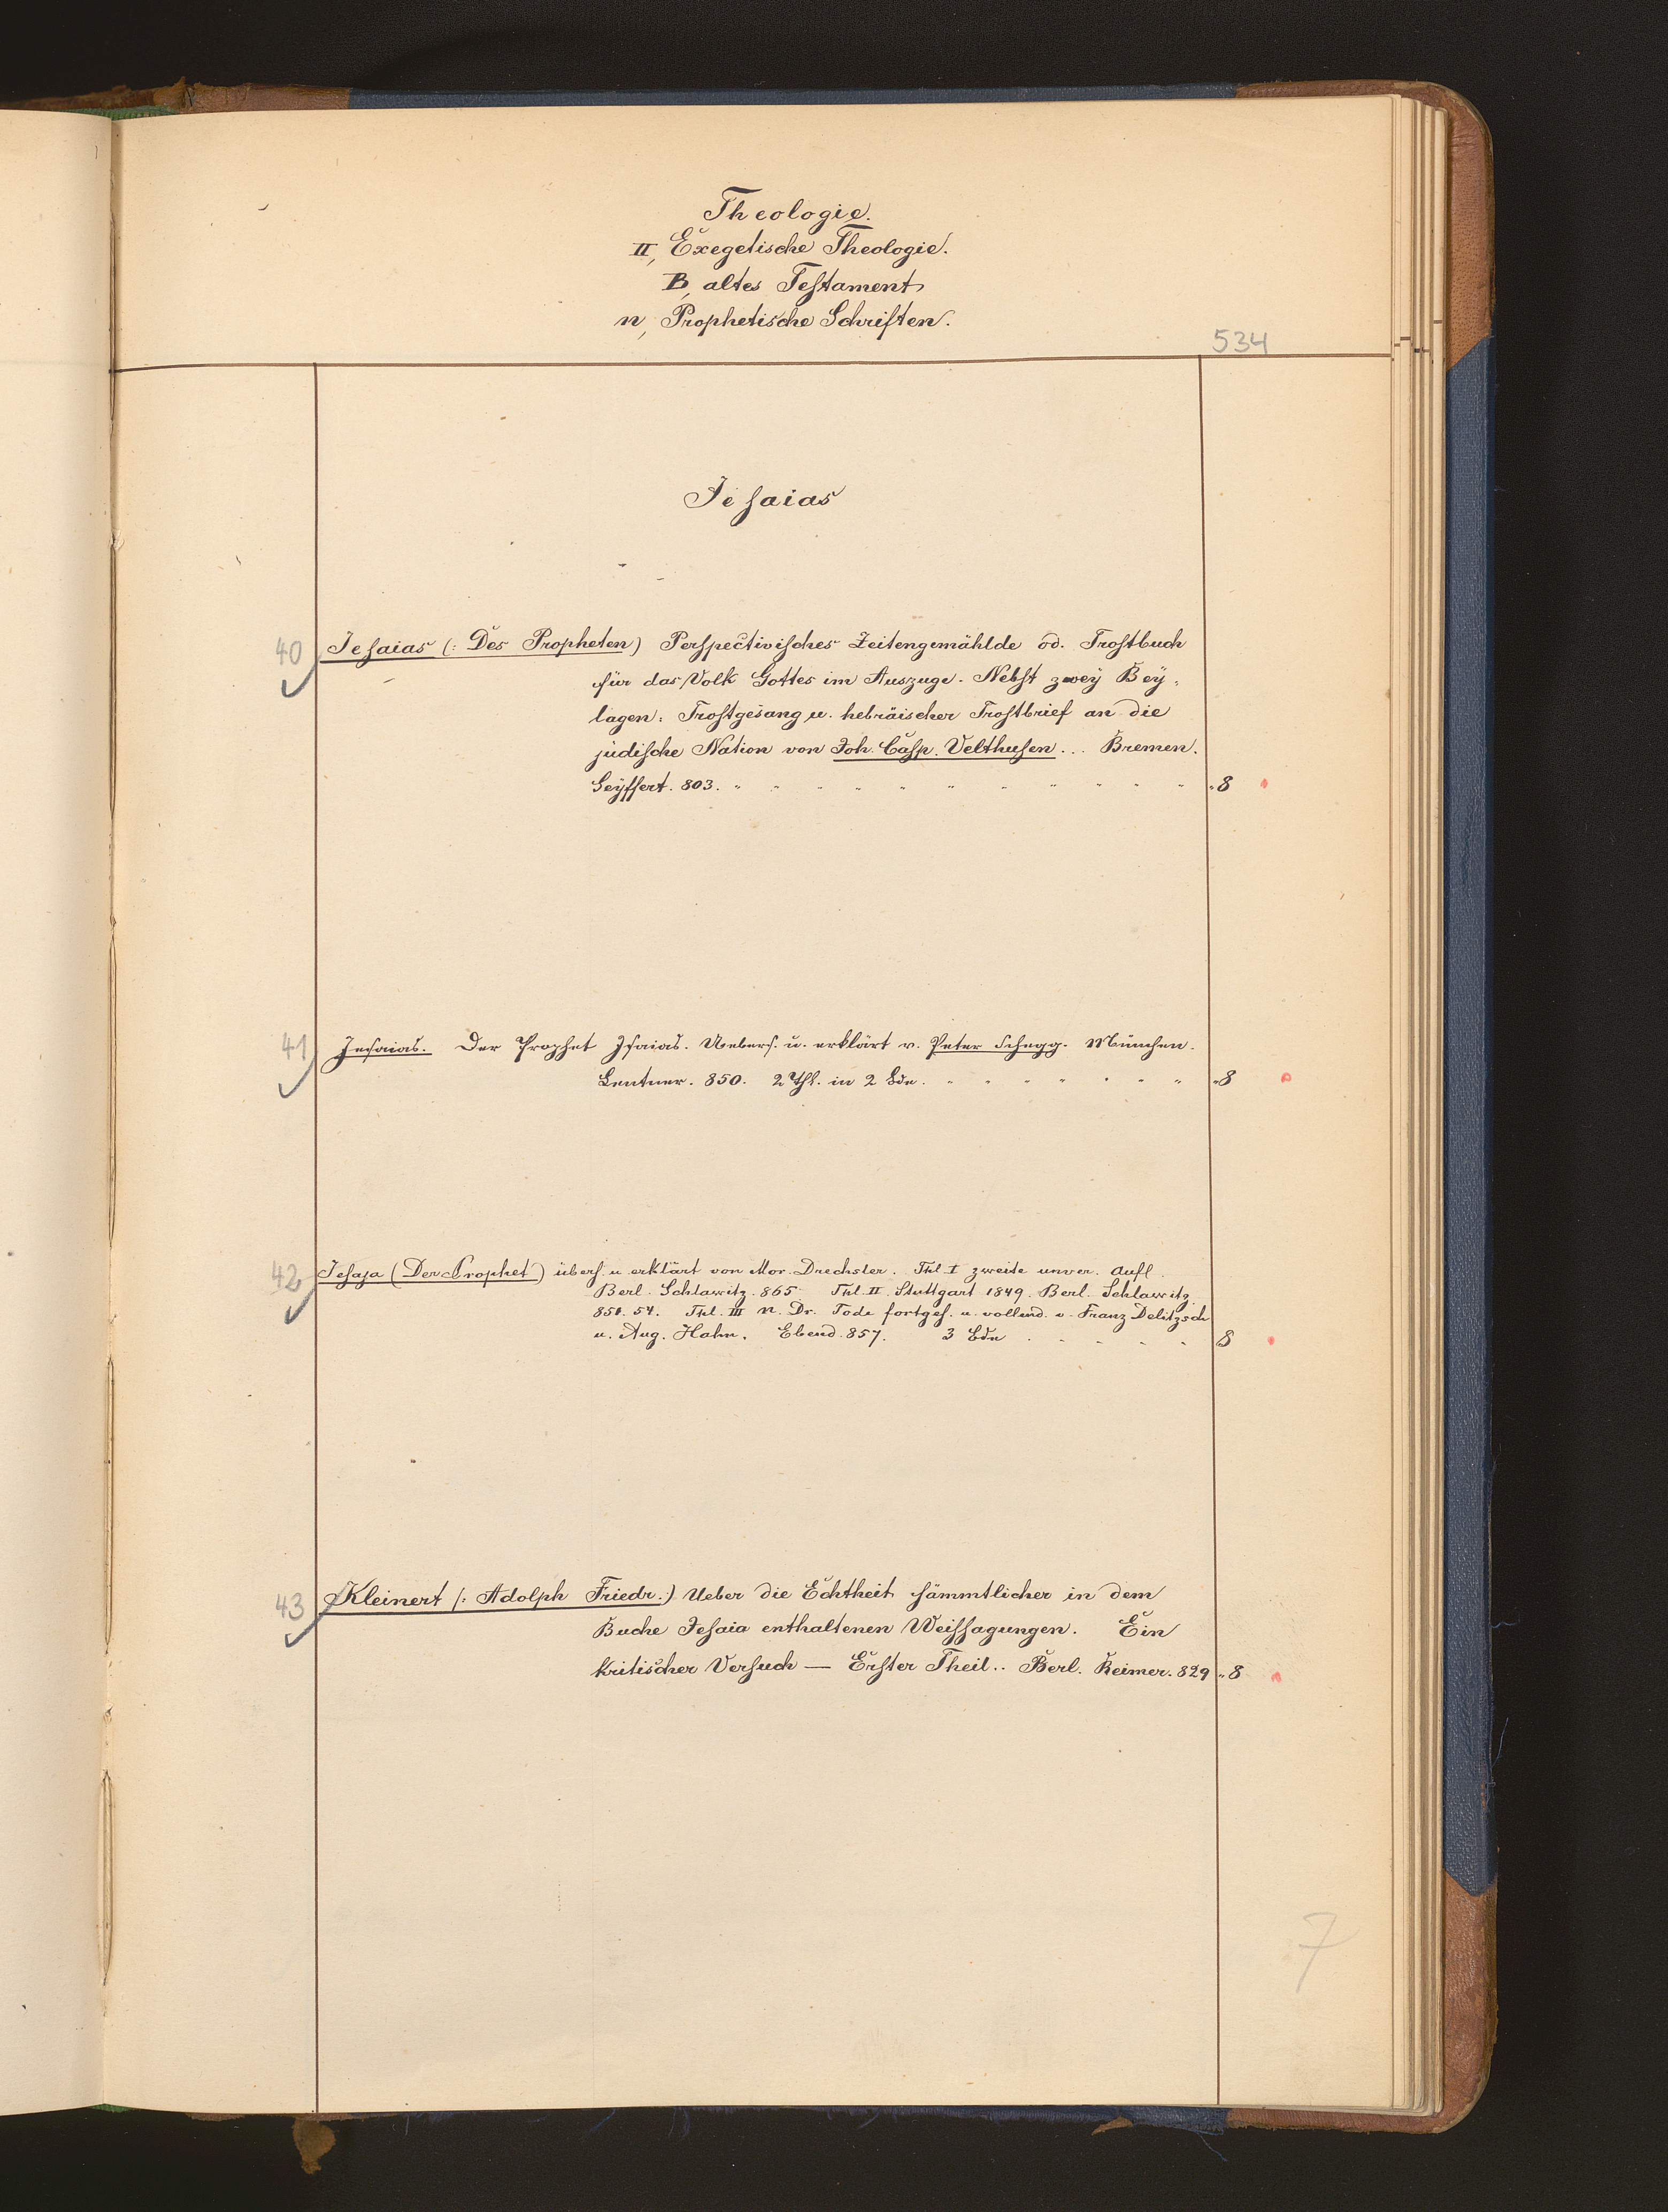 Theologie.
II, Exegetische Theologie.
B, altes Testament
n, Prophetische Schriften.
534
Jesaias
40 Jesaias (: Des Propheten) Perspectivisches Zeitengemählde od. Trostbuch
für das Volk Gottes im Auszuge. Nebst zwey Bey-
lagen: Trostgesang u. hebräischer Trostbrief an die
jüdische Nation von Joh. Casp. Velthusen... Bremen.
Seyffert. 803. " " " " " " " " " " " "8
41 Jesaias. Der Prophet Isaias. Uebers. u. erklärt v. Peter Schegg. München.
Lentner. 850. 2 Thl. in 2 Bdn. " " " " " " " "8
42 Jesaja (Der Prophet) übers. u. erklärt von Mor. Drechsler. Thl. I zweite unver. Aufl.
Berl. Schlawitz. 865. Thl. II. Stuttgart 1849. Berl. Schlawitz
851. 54. Thl. III n. Dr. Tode fortges. u. vollend. v. Franz Delitzsch
u. Aug. Hahn. Ebend. 857. 3 Bde . . . . . 8
43 Kleinert (: Adolph Friedr.:) Ueber die Echtheit sämmtlicher in dem
Buche Jesaia enthaltenen Weissagungen. Ein
kritischer Versuch — Erster Theil.. Berl. Reimer. 829 "8
7